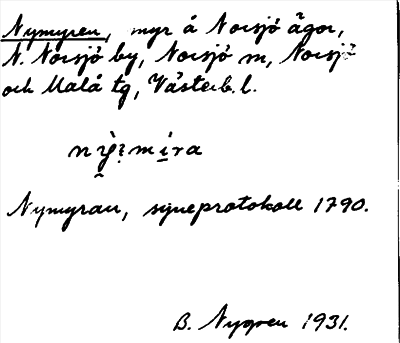 Nymyren, myr å Norsjö ägor,
N. Norsjö by, Norsjö m, Norsjö
och Malå tg, Västerb. l.
Nymyran, syneprotokoll 1790.
B. Nygren 1931.